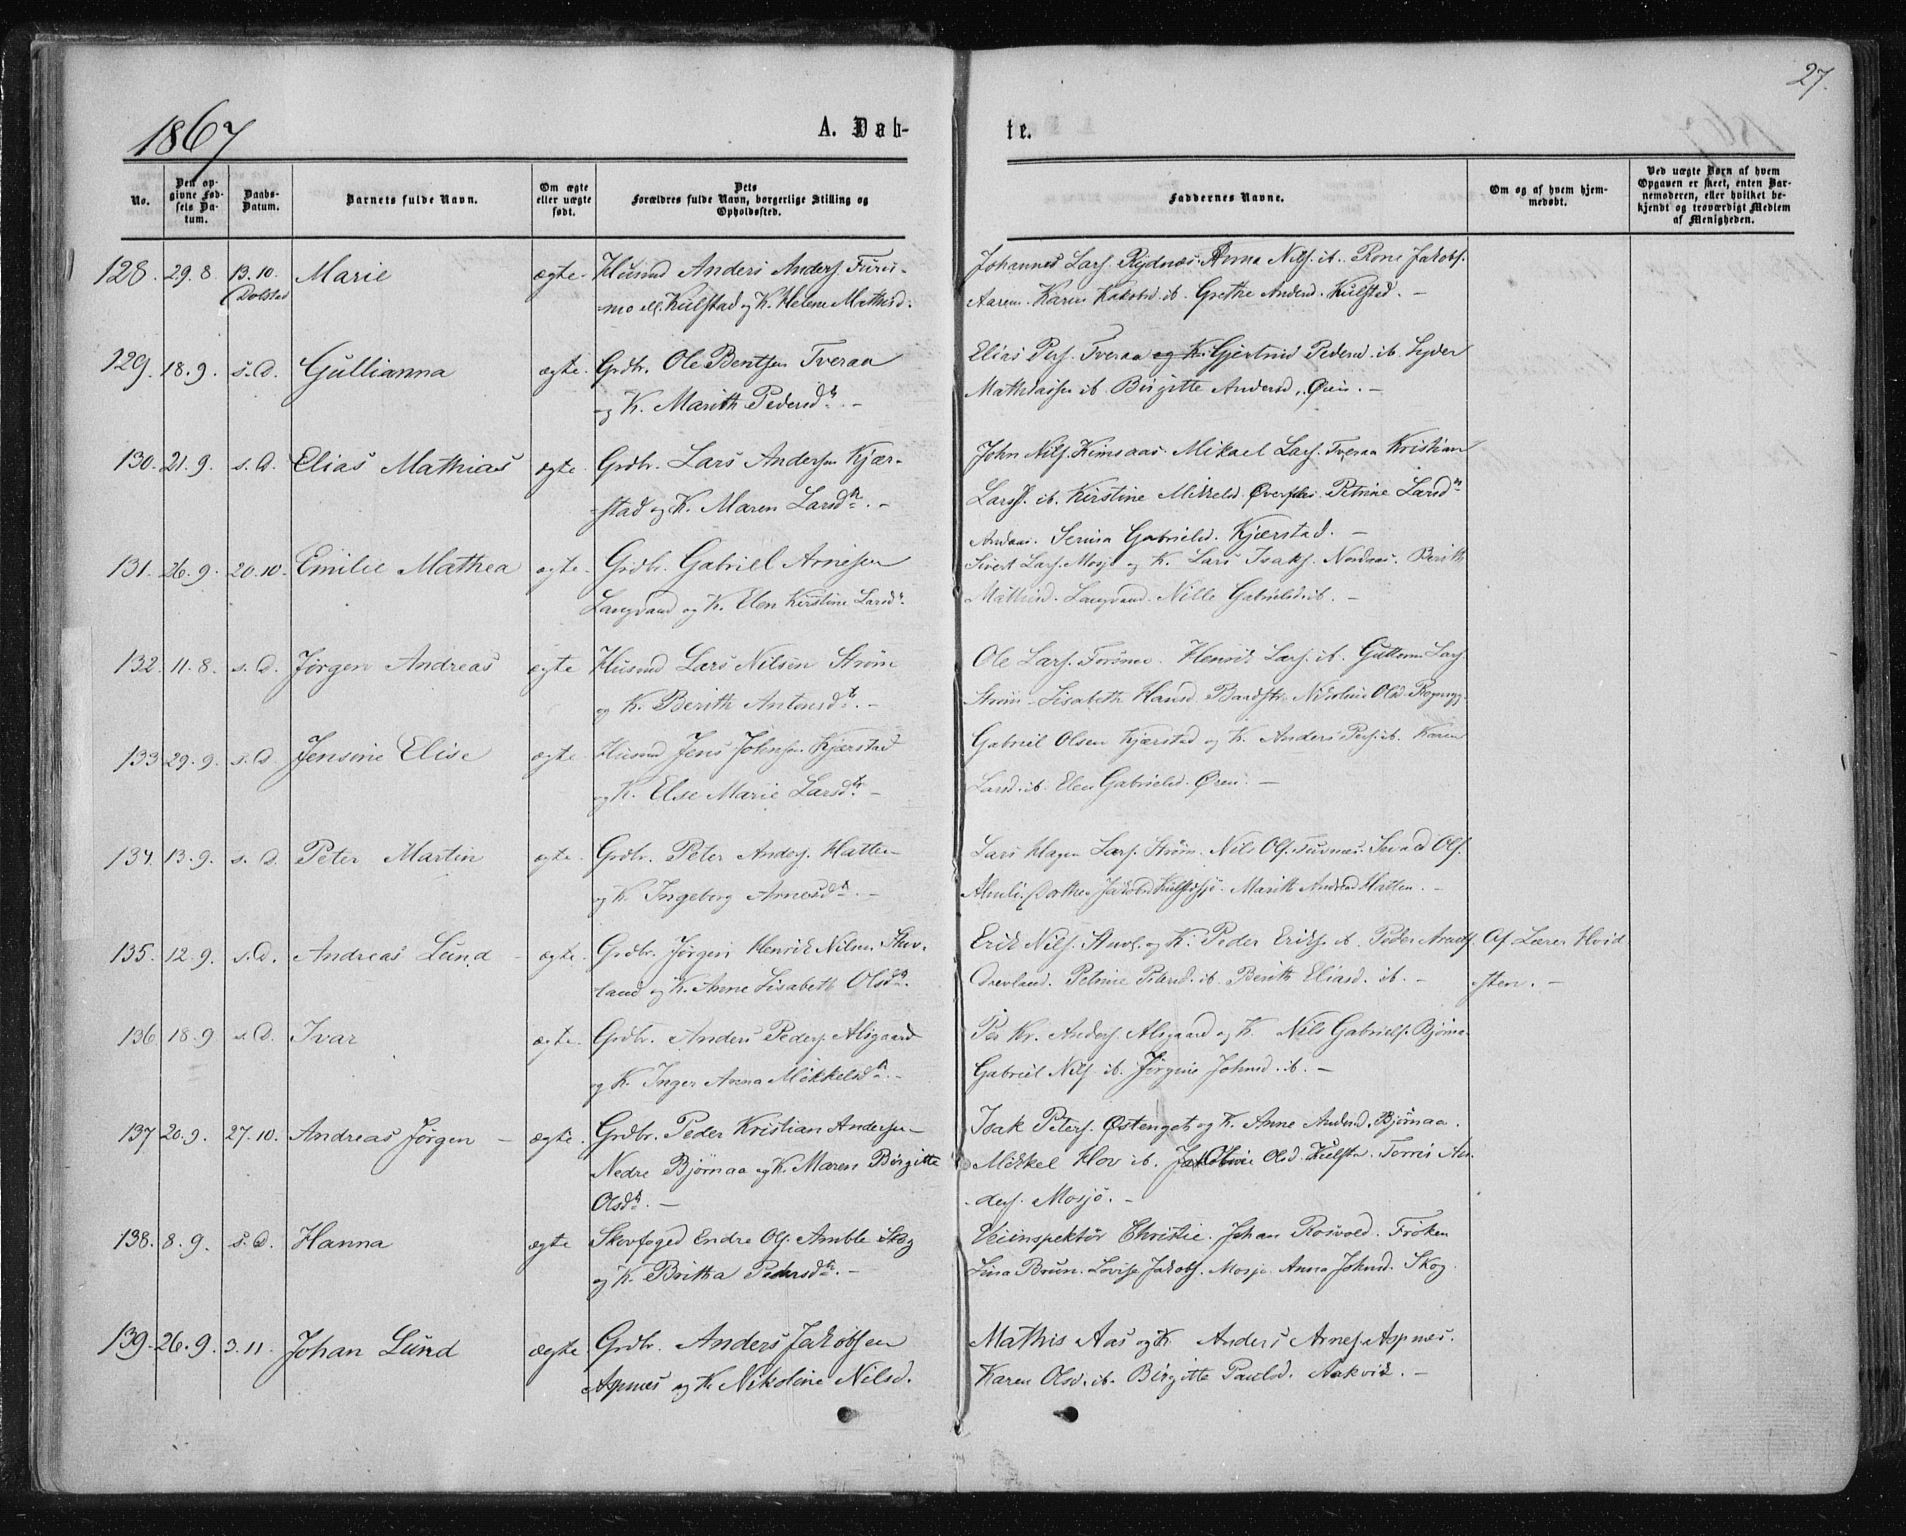 27.
1867
A. Døb-
te.
No.
Den op-
givne Fød-
sels Da-
tum.
Daabs-
Datum.
Barnets fulde Navn.
Om ægte
eller uægte
født.
Dets
Forældres fulde Navn, borgerlige Stilling og
Opholdssted.
Faddernes Navne.
Om og af hvem hjem-
medøbt.
Ved uægte Børn af hvem
Opgaven er skeet, enten Bar-
nemoderen, eller hvilket be-
kjendt og troværdigt Medlem
af Menigheden.
128. 29.8 13.10. Marie ægte. Husmd Anders Anders. Furus- Johannes Lars. Rydnæs. Anna Nils. ib. Rone Jakobs.
Dolstad mo ell. Kulstad og K. Helene Mathisd. Aarem. Karen Jakobsd ib. Grethe Andersd. Kulstad. —
129. 18.9. s.D. Gullianna ægte. Grdbr. Ole Bentsen Tveraa Elias Pers. Tveraa og K. Gjertrud Pedersd. ib. Lyder
og K. Marith Pedersdtr. — Mathiassen ib. Birgitte Andersd. Øren. —
130. 21.9. s.D. Elias Mathias ægte. Grdbr. Lars Andersen Kjær- John Nils. Kimsaas. Mikael Lars. Tveraa Kristian
stad og K. Maren Larsdtr. — Larss. ib. Kirstine Mikkelsd. Petrine Larsdtr
Serina Gabrielsd. Kjærstad. —
131. 26.9. 20.10. Emilie Mathea ægte. Grdbr. Gabriel Arnesen Sivert Lars. Mosjø og K. Lars Isaks. Nordaas. Berith
Langvand og K. Elen Kirstine Larsdtr. Mathisd. Langvand. Nille Gabrielsd. ib. —
132. 11.8. s.D. Jørgen Andreas ægte Husmd Lars Nilsen Strøm Ole Lars. Forsmo. Henrik Lars. ib. Guttorm Lars.
og K. Berith Antonsdtr. — Strøm. Lisabeth Hansd. Baadstr. Nikoline Olsd.
133 29.9. s.D. Jensine Elise ægte. Husmd Jens Johnsen Kjærstad Gabriel Olsen Kjærstad og K. Anders Pers. ib. Karen
og K. Else Marie Larsdtr. — Larsd. ib. Elen Gabrielsd. Øren. —
134. 13.9. s.D. Peter Martin ægte. Grdbr. Peter Anders. Hatten Lars Hagen Lars. Strøm. Nils Ols. Sivad Ols.
og K. Ingeborg Arnesdtr. — Almli. Jakobsd Marith Andersd Hatten. —
135. 12.9. s.D. Andreas Lund ægte. Grdbr. Jørgen Henrik Nilsen Skov- Erik Nils. og K. Peder Eriks. ib. Peder Af Lærer Hvid
land og K. Anne Lisabeth Olsdtr. Drevland. Petrine ib. Berith Eliasd. ib. — sten. —
136 18.9 s.D. Ivar ægte. Grdbr. Anders Peders. Alsgaard Per Kr. Anders. Alsgaard og K. Nils Gabriels. Bjørnaa
og K. Inger Anna Mikkelsdtr. — Gabriel Nils. ib. Jørgine Johnsd. ib. —
137 20.9. 27.10. Andreas Jørgen — ægte. Grdbr. Peder Kristian Andersen Isak Peters. Østenget og K. Anne Andersd. Bjørnaa.
Nedre Bjørnaa og K. Maren Birgitte Mikkel Hov ib. Jakobine Olsd. Kulsta. Torris An-
Olsdtr. — ders. Mosjø. —
138. 8.9. s.D. Hanna ægte Skovfoged Endre Ols. Amble Skog Veiinspektør Christie. Johan Rosvold. Frøken
og K. Britha Pedersdtr. — Lina Brun. Lovise Jakobs. Mosjø. Anna Johnsd. Skog
139. 26.9. 3.11. Johan Lund ægte. Grdbr. Anders Jakobsen Mathis Aas og K. Anders Arnes. Aspnæs.
Aspnæs og K. Nikoline Nilsd. Karen Olsd. ib. Birgitte Paulsd. Aakvik. —